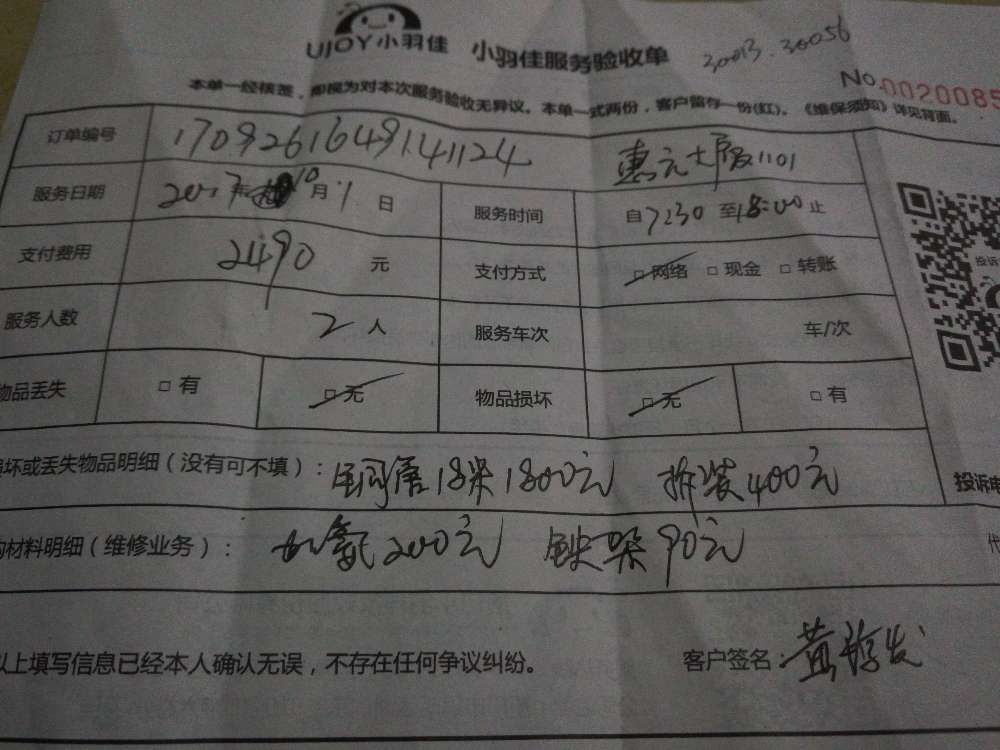 UJOY小羽佳 小羽佳服务验收单 30013.30056
No.0020085
本单一经核签，即视为对本次服务验收无异议。本单一式两份，客户留存一份(红)。《维保须知》详见背面。
订单编号 1709261649141124 惠元大厦1101
服务日期 2017年10月1日 服务时间 自7:30至18:00止
支付费用 2490 元 支付方式 □网络 □现金 □转账
服务人数 2人 服务车次 车/次
物品丢失 □有 □无 物品损坏 □无 □有
坏或丢失物品明细（没有可不填）：铜管18米1800元 拆装400元
投诉电
材料明细（维修业务）：加氟200元 90元
代
以上填写信息已经本人确认无误，不存在任何争议纠纷。 客户签名：黄
投诉